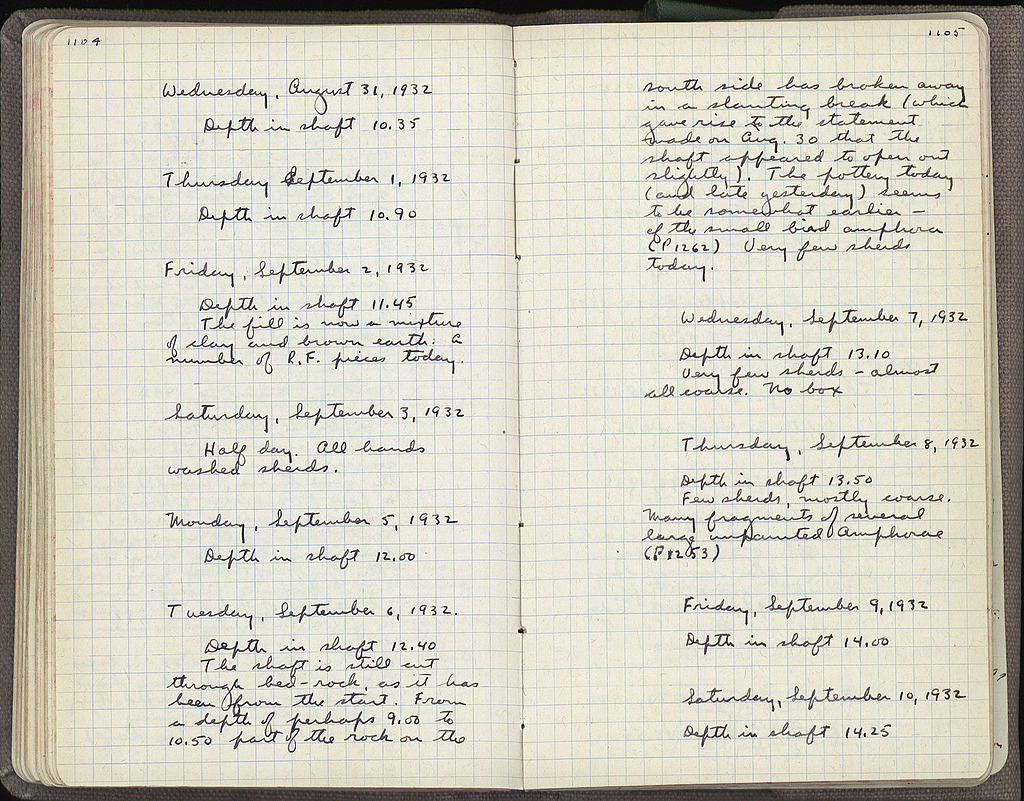 1104
Wednesday, August 31, 1932
Depth in shaft 10.35
Thursday September 1, 1932
Depth in shaft 10.90
Friday, September 2, 1932
Depth in shaft 11.45
The fill is now a mixture
of clay and brown earth. A
number of R.F. pieces today.
Saturday, September 3, 1932
Half day. All hands
washed sherds.
Monday, September 5, 1932
Depth in shaft 12.00
Tuesday, September 6, 1932.
Depth in shaft 12.40
The shaft is still cut
through bed-rock, as it has
been from the start. From
a depth of perhaps 9.00 to
10.50 part of the rock on the
1105
south side has broken away
in a slanting break (which
gave rise to the statement
made on Aug. 30 that the
shaft appeared to open out
slightly). The pottery today
(and late yesterday) seems
to be somewhat earlier –
of the small bird amphora
(P1262) Very few sherds
today.
Wednesday, September 7, 1932
Depth in shaft 13.10
Very few sherds – almost
all coarse. No box
Thursday, September 8, 1932
Depth in shaft 13.50
Few sherds, mostly coarse.
Many fragments of several
large unpainted Amphorae
(P1253)
Friday, September 9, 1932
Depth in shaft 14.00
Saturday, September 10, 1932
Depth in shaft 14.25